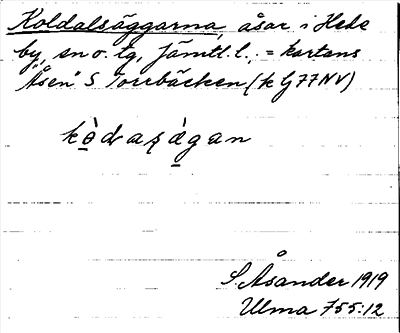 Koldalsäggarna, åsar i Hede
by, sn o. tg, Jämtl. l., = kartans
"Åsen" S Torrbäcken (k Lj 77 NV)
kò̱daṣà̱gan
S. Åsander 1919
Ulma 755:12